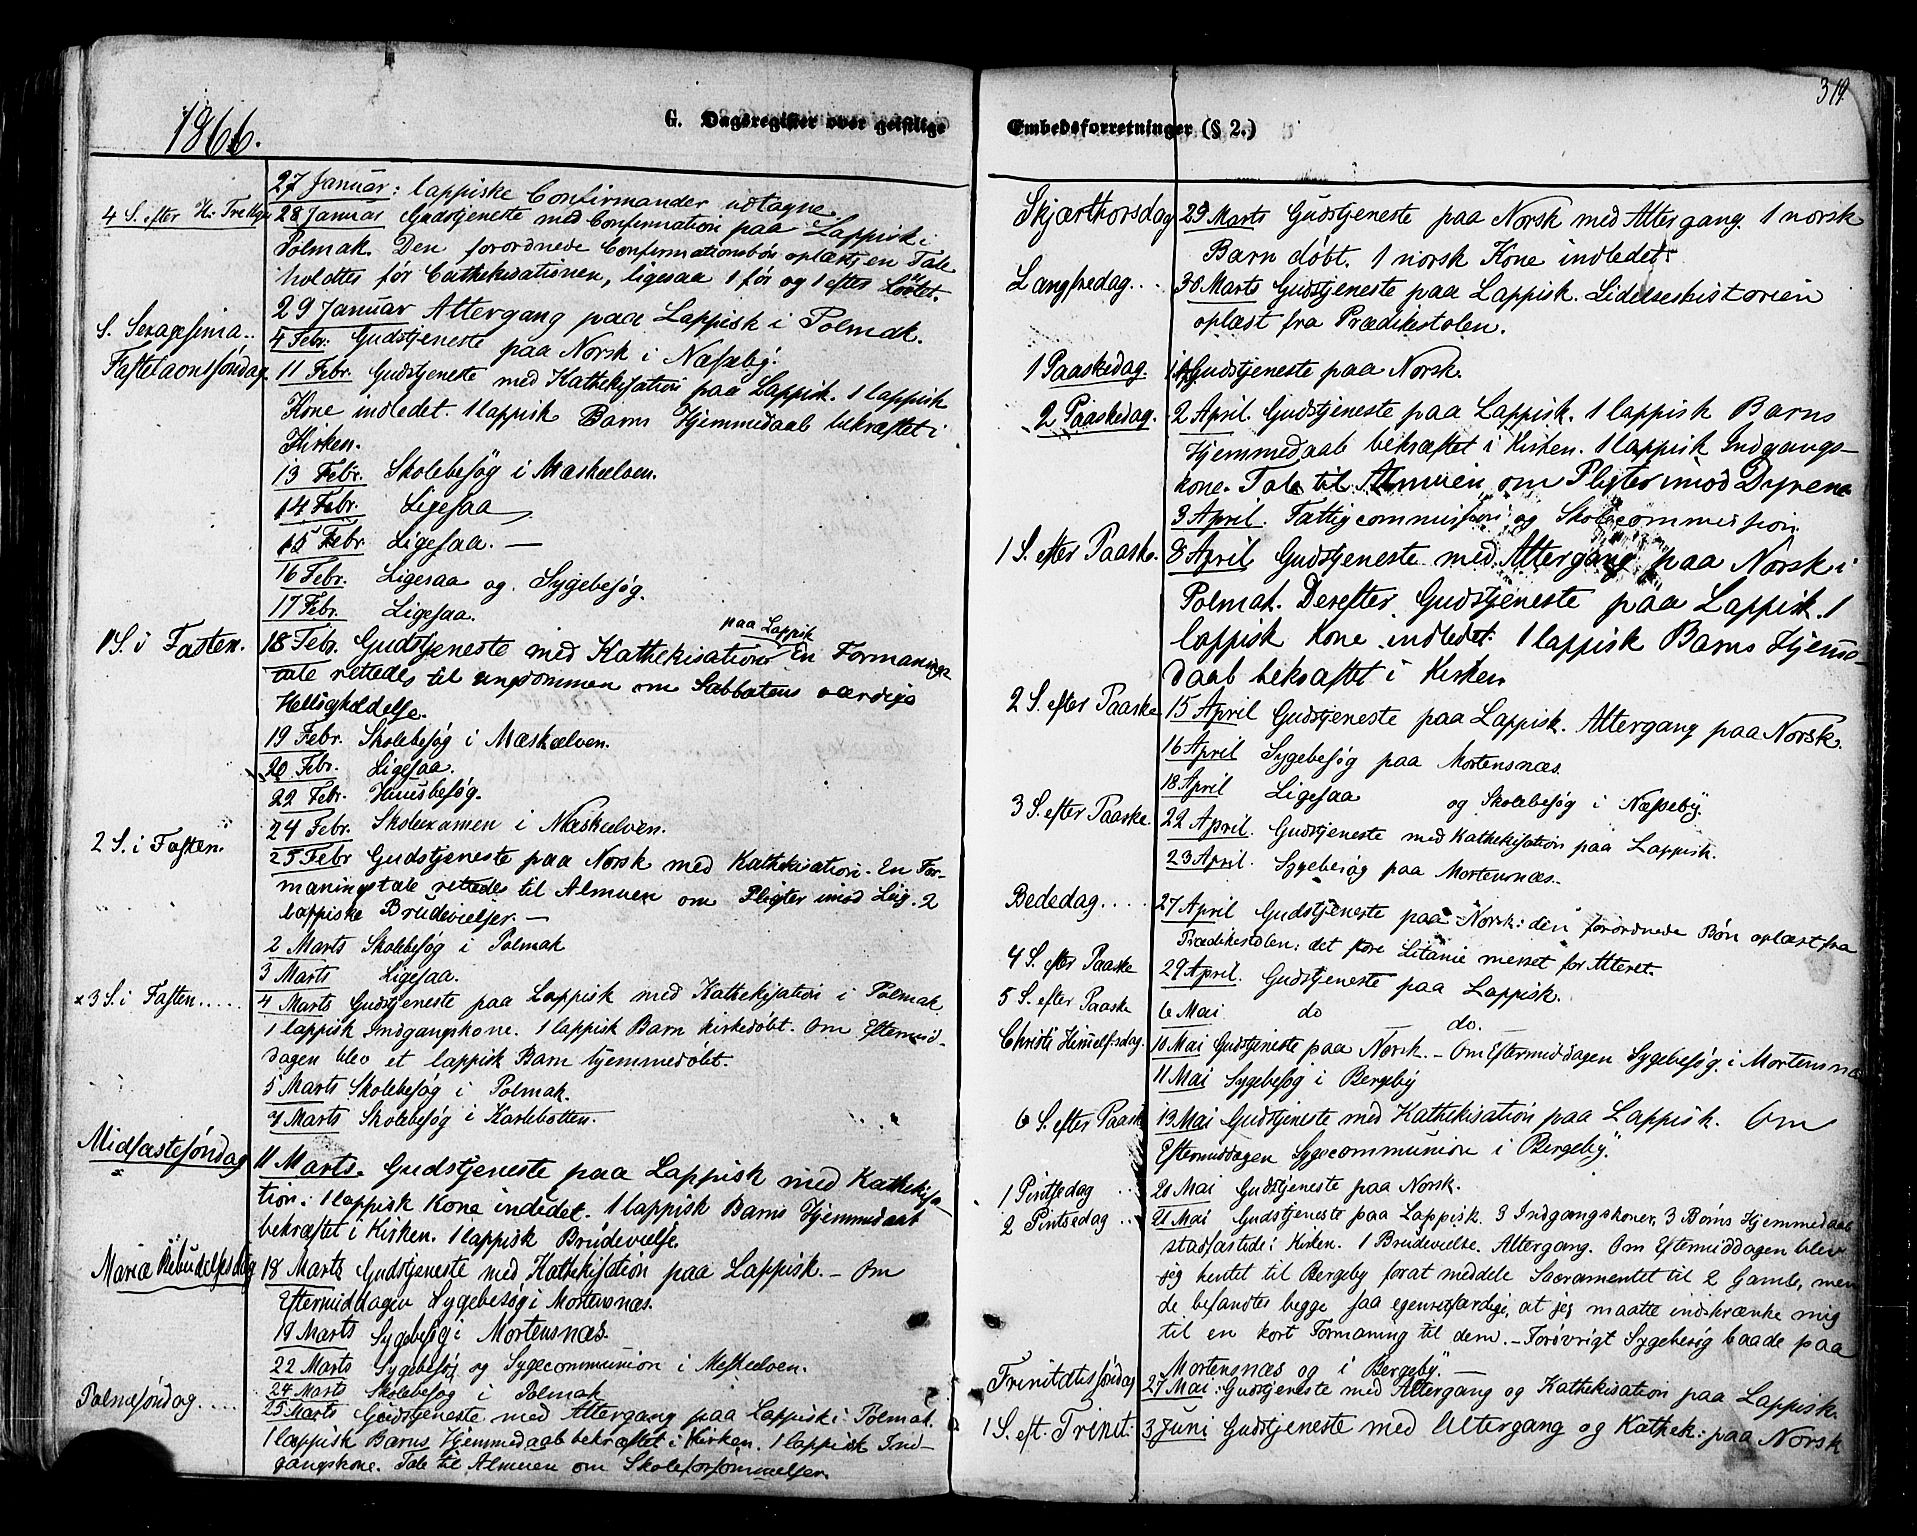 1866.
G. Dagsregister over geistlige
27 Januar: lappiske Confirmander udtagne
4 S. efter H. Tre Kgr 28 Januar Gudstjeneste med Confirmation paa Lappisk i
Polmak. Den forordnede Confirmationsbön oplæst, en Tale
holdtes för Cathekisationen, ligesaa 1 för og 1 efter Löftet.
29 Januar Altergang paa Lappisk i Polmak.
S. Sexagesima.. 4 Febr: Gudstjeneste paa Norsk i Næsseby.
Fastelavnsföndag 11 Febr. Gudstjeneste med Kathekisation paa Lappisk. 1 lappisk
Kone indledet. 1 lappisk Barns Hjemmedaab bekræftet i
Kirken.
13 Febr. Skolebesög i Mæskelven.
14 Febr. Ligesaa
15 Febr. Ligesaa. —
16 Febr. Ligesaa og Sygebesög.
17 Febr. Ligesaa.
paa Lappisk
1 S. i Fasten. 18 Febr. Gudstjeneste med Kathekisation En Formanings-
tale rettedes til ungdommen om Sabbatens værdige
Helligholdelse.
19 Febr. Skolebesög i Mæskelven.
20 Febr. Ligesaa.
22 Febr. Huusbesög.
24 Febr. Skoleexamen i Mæskelven.
2 S. i Fasten. 25 Febr Gudstjeneste paa Norsk med Kathekisation. En For-
maningstale rettedes til Almuen om Pligter imod Liig. 2
lappiske Brudevielser. —
2 Marts Skolebesög i Polmak
3 Marts Ligesaa.
x 3 S. i Fasten..... 4 Marts Gudstjeneste paa Lappisk med Kathekisation i Polmak
1 lappisk Indgangskone. 1 lappisk Barn kirkedöbt. Om Eftermid-
dagen blev et lappisk Barn hjemmedöbt.
5 Marts Skolebesög i Polmak.
7 Marts Skolebesög i Karlebotten.
Midfastesöndag 11 Marts. Gudstjeneste paa Lappisk med Kathekisa-
tion: 1 lappisk Kone indledet. 1 lappisk Barns Hjemmedaab
bekræftet i Kirken. 1 lappisk Brudevielse.
Mariæ Bebudelsesdag 18 Marts Gudstjeneste med Kathekisation paa Lappisk. — Om
Eftermiddagen Sygebesög i Mortensnæs.
19 Marts Sygebesög i Mortensnæs.
22 Marts Sygebesög og Sygecommunion i Meskelven.
24 Marts Skolebesog i Polmak
Palmesöndag..... 25 Marts Gudstjeneste med Altergang paa Lappisk i Polmak.
1 lappisk Barns Hjemmedaab bekræftet i Kirken. 1 lappisk Ind-
gangskone. Tale til Almuen om Skoleforsömmelser.
319
Embedsforretninger (§ 2.)
Skjærthorsdag 29 Marts Gudstjeneste paa Norsk med Altergang. 1 norsk
Barn döbt. 1 norsk Kone indledet.
Langfredag... 30 Marts Gudstjeneste paa Lappisk. Lidelseshistorien
oplæst fra Prædikestolen.
1 Paaskedag. Gudstjeneste paa Norsk.
2 Paaskedag. 2 April. Gudstjeneste paa Lappisk. 1 lappisk Barns
Hjemmedaab bekræftet i Kirken. 1 lappisk Indgangs-
kone. Tale til Almuen om Pligter imod Dyrene
3 April. Fattigcommission og Skolecommission.
1 S. efter Paaske. 8 April Gudstjeneste med Altergang paa Norsk i
Polmak. Derefter Gudstjeneste paa Lappisk. 1
lappisk Kone indledet. 1 lappisk Barns Hjemme-
daab bekræftet i Kirken.
2 S. efter Paaske 15 April Gudstjeneste paa Lappisk. Altergang paa Norsk.
16 April Sygebesög paa Mortensnæs.
18 April Ligesaa og Skolebesög i Næsseby.
3 S. efter Paaske. 22 April. Gudstjeneste med Kathekisation paa Lappisk.
23 April. Sygebesög paa Mortensnæs.
Bededag..... 27 April Gudstjeneste paa Norsk: den forordnede Bön oplæst fra
Prædikestolen: det store Litanie messet for Alteret.
4 S. efter Paaske 29 April. Gudstjeneste paa Lappisk.
5 S. efter Paaske 6 Mai do do.
Christi Himmelfsdag. 10 Mai Gudstjeneste paa Norsk. — Om Eftermiddagen Sygebesög i Mortensnæ
11 Mai Sygebesög i Bergeby
6 S. efter Paaske 13 Mai Gudstjeneste med Kathekisation paa Lappisk. Om
Eftermiddagen Sygecommunion i Bergeby.
1 Pintsedag .. 20 Mai Gudstjeneste paa Norsk.
2 Pintsedag .. 21 Mai Gudstjeneste paa Lappisk. 3 Indgangskoner, 3 Börns Hjemmedaab
stadfæstede i Kirken. 1 Brudevielse. Altergang. Om Eftermiddagen blev
jeg hentet til Bergeby forat meddele Sacramentet til 2 Gamle, men
de befandtes begge saa egenretfærdige, at jeg maatte indskrænke mig
til en kort Formaning til dem. — Forövrigt Sygebesög baade paa
Mortensnæs og i Bergeby. —
Trinitatissöndag 27 Mai: Gudstjeneste med Altergang og Kathekisation paa Lappisk.
1 S. eft. Trinit. 3 Juni Gudstjeneste med Altergang og Kathek: paa Norsk